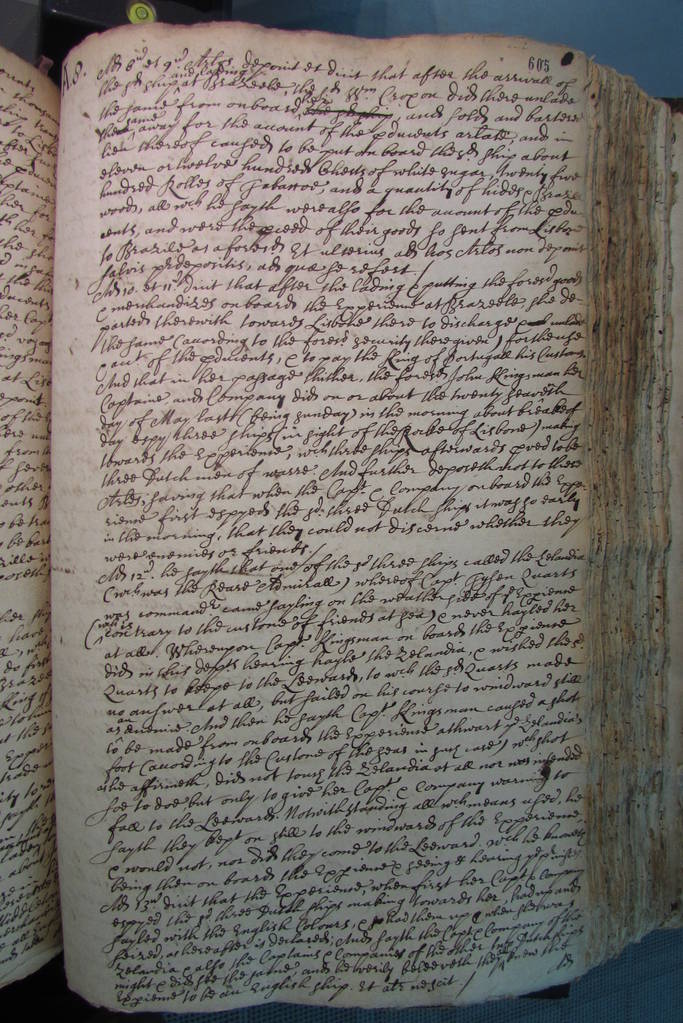 605
A. 8.
Ad 8um et 9um Artos. deponit et dicit that after the arrivall of
the sd ship at Brazeele, the sd Wm Croxon did there unlade
and lading
the same from on board her the ship, and sold and bartered
the same away for the account of the producents arlate, and in
lieu thereof caused to be put on board the sd ship about
eleven or twelve hundred Chests of white sugar, twenty five
hundred Rolles of Tabaccoe, and a quantity of hides & Brazeele
wood, all wch he sayth were also for the account of the produ-
cents, and were the proceed of their goods so sent from Lisbone
to Brazile as aforesd Et ulterius ad hos Artos non deponit
salvis prdepositis, ad quae se refert./
Ad 10. et 11um dicit that after the lading & putting the foresd goods
& merchandizes on board the Experience at Brazeele, she de-
parted therewith towards Lisbone there to discharge & unlade
the same (according to the foresd security there given) for the use
& accot of the producents, & to pay the King of Portugall his Customs
And that in her passage thither, the foresd John Kingsman her
Captaine and Company did on or about the twenty seaventh
day of May last (being sunday) in the morning about breake of
day espy three ships (in sight of the Rocke of Lisbone) making
towards the Experience, wch three ships afterwards proved to be
three Dutch men of warre And further deposeth not to these
Artles, saving that when the Capt. & Company on board the Expe-
rience first espyed the sd three Dutch ships it was so early
in the morning, that they could not discerne whether they
were enemies or friends./
Ad 12um he sayth that one of the sd three ships called the Zelandia
(wch was the Reare Admirall) whereof Capt. Gysen Quarts
was commander came sayling on the weather side of ye Experience
(wch is contrary to the custome of friends at sea) & never hayled her
at all. Whereupon Capt. Kingsman on board the Experience
did in this depts hearing hayle the Zelandia, & wished the sd
Quarts to keepe to the Leeward, to wch the sd Quarts made
no answer at all, but sailed on his course to windward still
as an enemie And then he sayth Capt. Kingsman caused a shot
to be made from on board the Experience athwart ye Zelandia's
foot (according to the Custome of the seas in such case) wch shot
as he affirmeth, did not touch the Zelandia at all nor was intended
soe to doe but only to give her Capt. & Company warning to
fall to the Leeward. Notwithstanding all wch meanes used, he
sayth they kept on still to the windward of the Experience,
& would not, nor did they come to the Leeward, wch he knoweth
being then on board the Experience & seeing & hearing ye premisses
Ad 13um dicit that the Experience, when first her Capt. & Company
espyed the sd three Dutch ships making towards her, had up and
sayled with the English Colours, & had them up when she was
seized, as hereafter is declared; And sayth the Capt. & Company of the
Zelandia & also the Captains & Companies of the other two Dutch ships
might & did see the same, and he verily beleeveth they knew the
Experience to be an English ship. Et alr nescit./